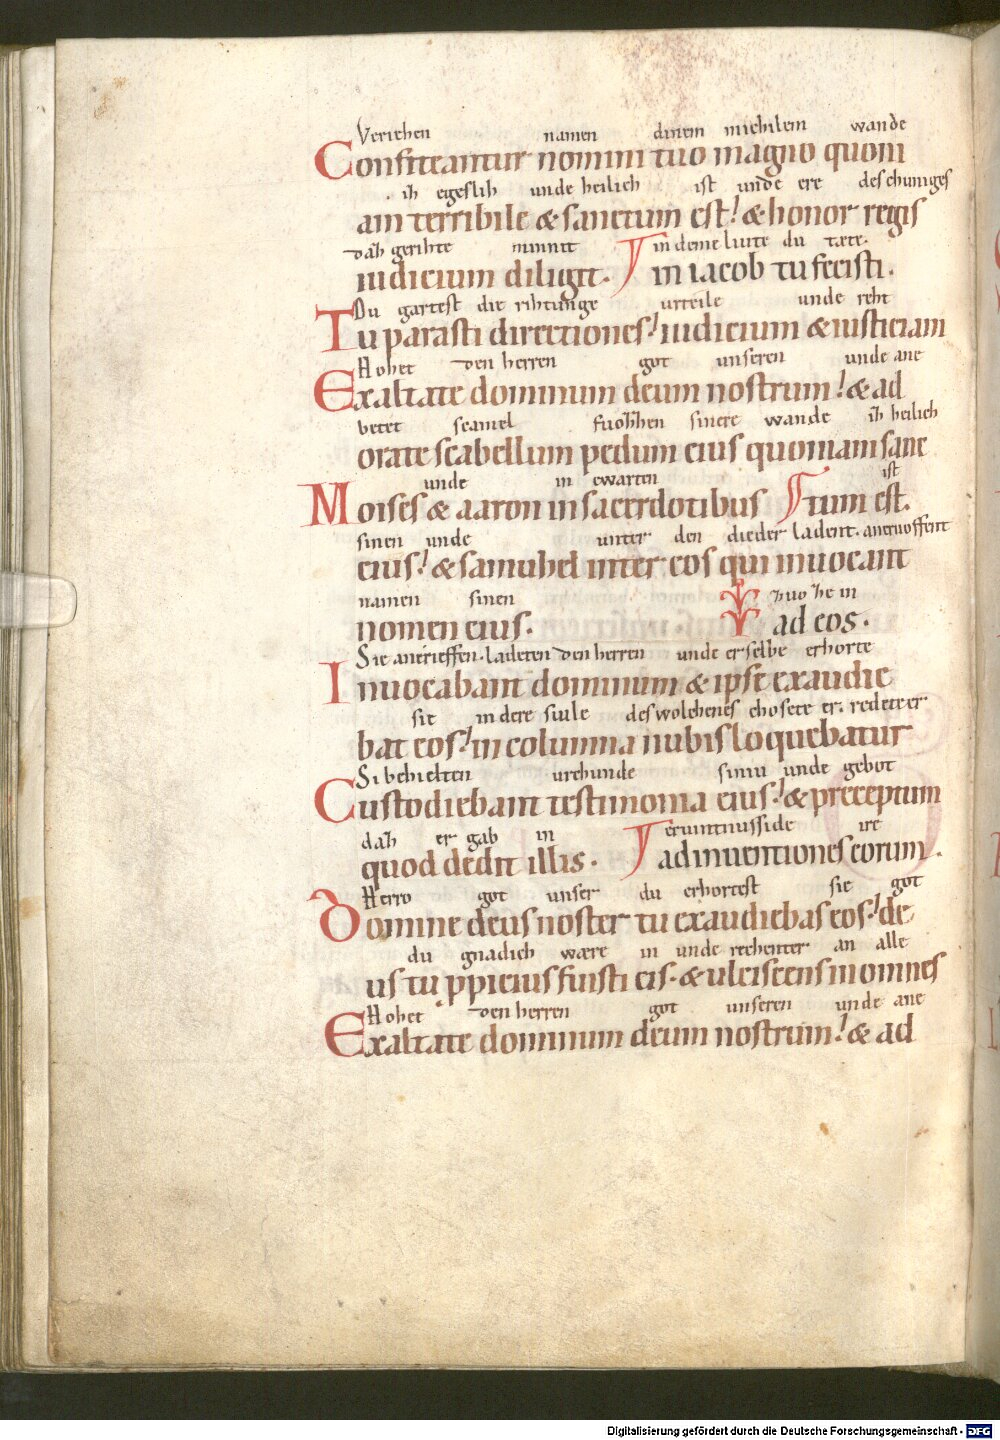 Veriehen namen dinem michilem wande
Confiteantur nomini tuo magno quoni
ih egeslih unde heilich ist unde ere des chuniges
am terribile & sanctum est! & honor regis
dah gerihte minnit in deme liute du tæte.
iudicium diligit. in iacob tu fecisti.
Du gartest die rihtunge urteile unde reht
Tu parasti directiones! iudicium & iusticiam
Hohet den herren got unseren unde ane
Exaltate dominum deum nostrum! & ad
betet scamel fuohhen sinere wande ih heilich
orate scabellum pedum eius quoniam sanc
unde in ewarten ist
Moises & aaron in sacerdotibus tum est.
sinen unde unter den die der ladent. aneruoffent
eius! & samuhel inter eos qui inuocant
namen sinen huo he in
nomen eius. ad eos.
Sie anerieffen. ladeten den herren unde er selbe erhorte
Inuocabant dominum & ipse exaudie
sie in dere siule des wolchenes chosete er. redete er
bat eos! in columna nubis loquebatur
Si behielten urchunde siniu unde gebot
Custodiebant testimonia eius! & preceptum
dah er gab in ire
quod dedit illis. adinuentiones eorum.
Herro got unser du erhortest sie got
Domine deus noster tu exaudiebas eos! de
du gnadich wære in unde rechenter an alle
us tu ppicius fuisti eis. & ulciscens in omnes
Hohet den herren got unseren unde ane
Exaltate dominum deum nostrum! & ad
Digitalisierung gefördert durch die Deutsche Forschungsgemeinschaft - DFG